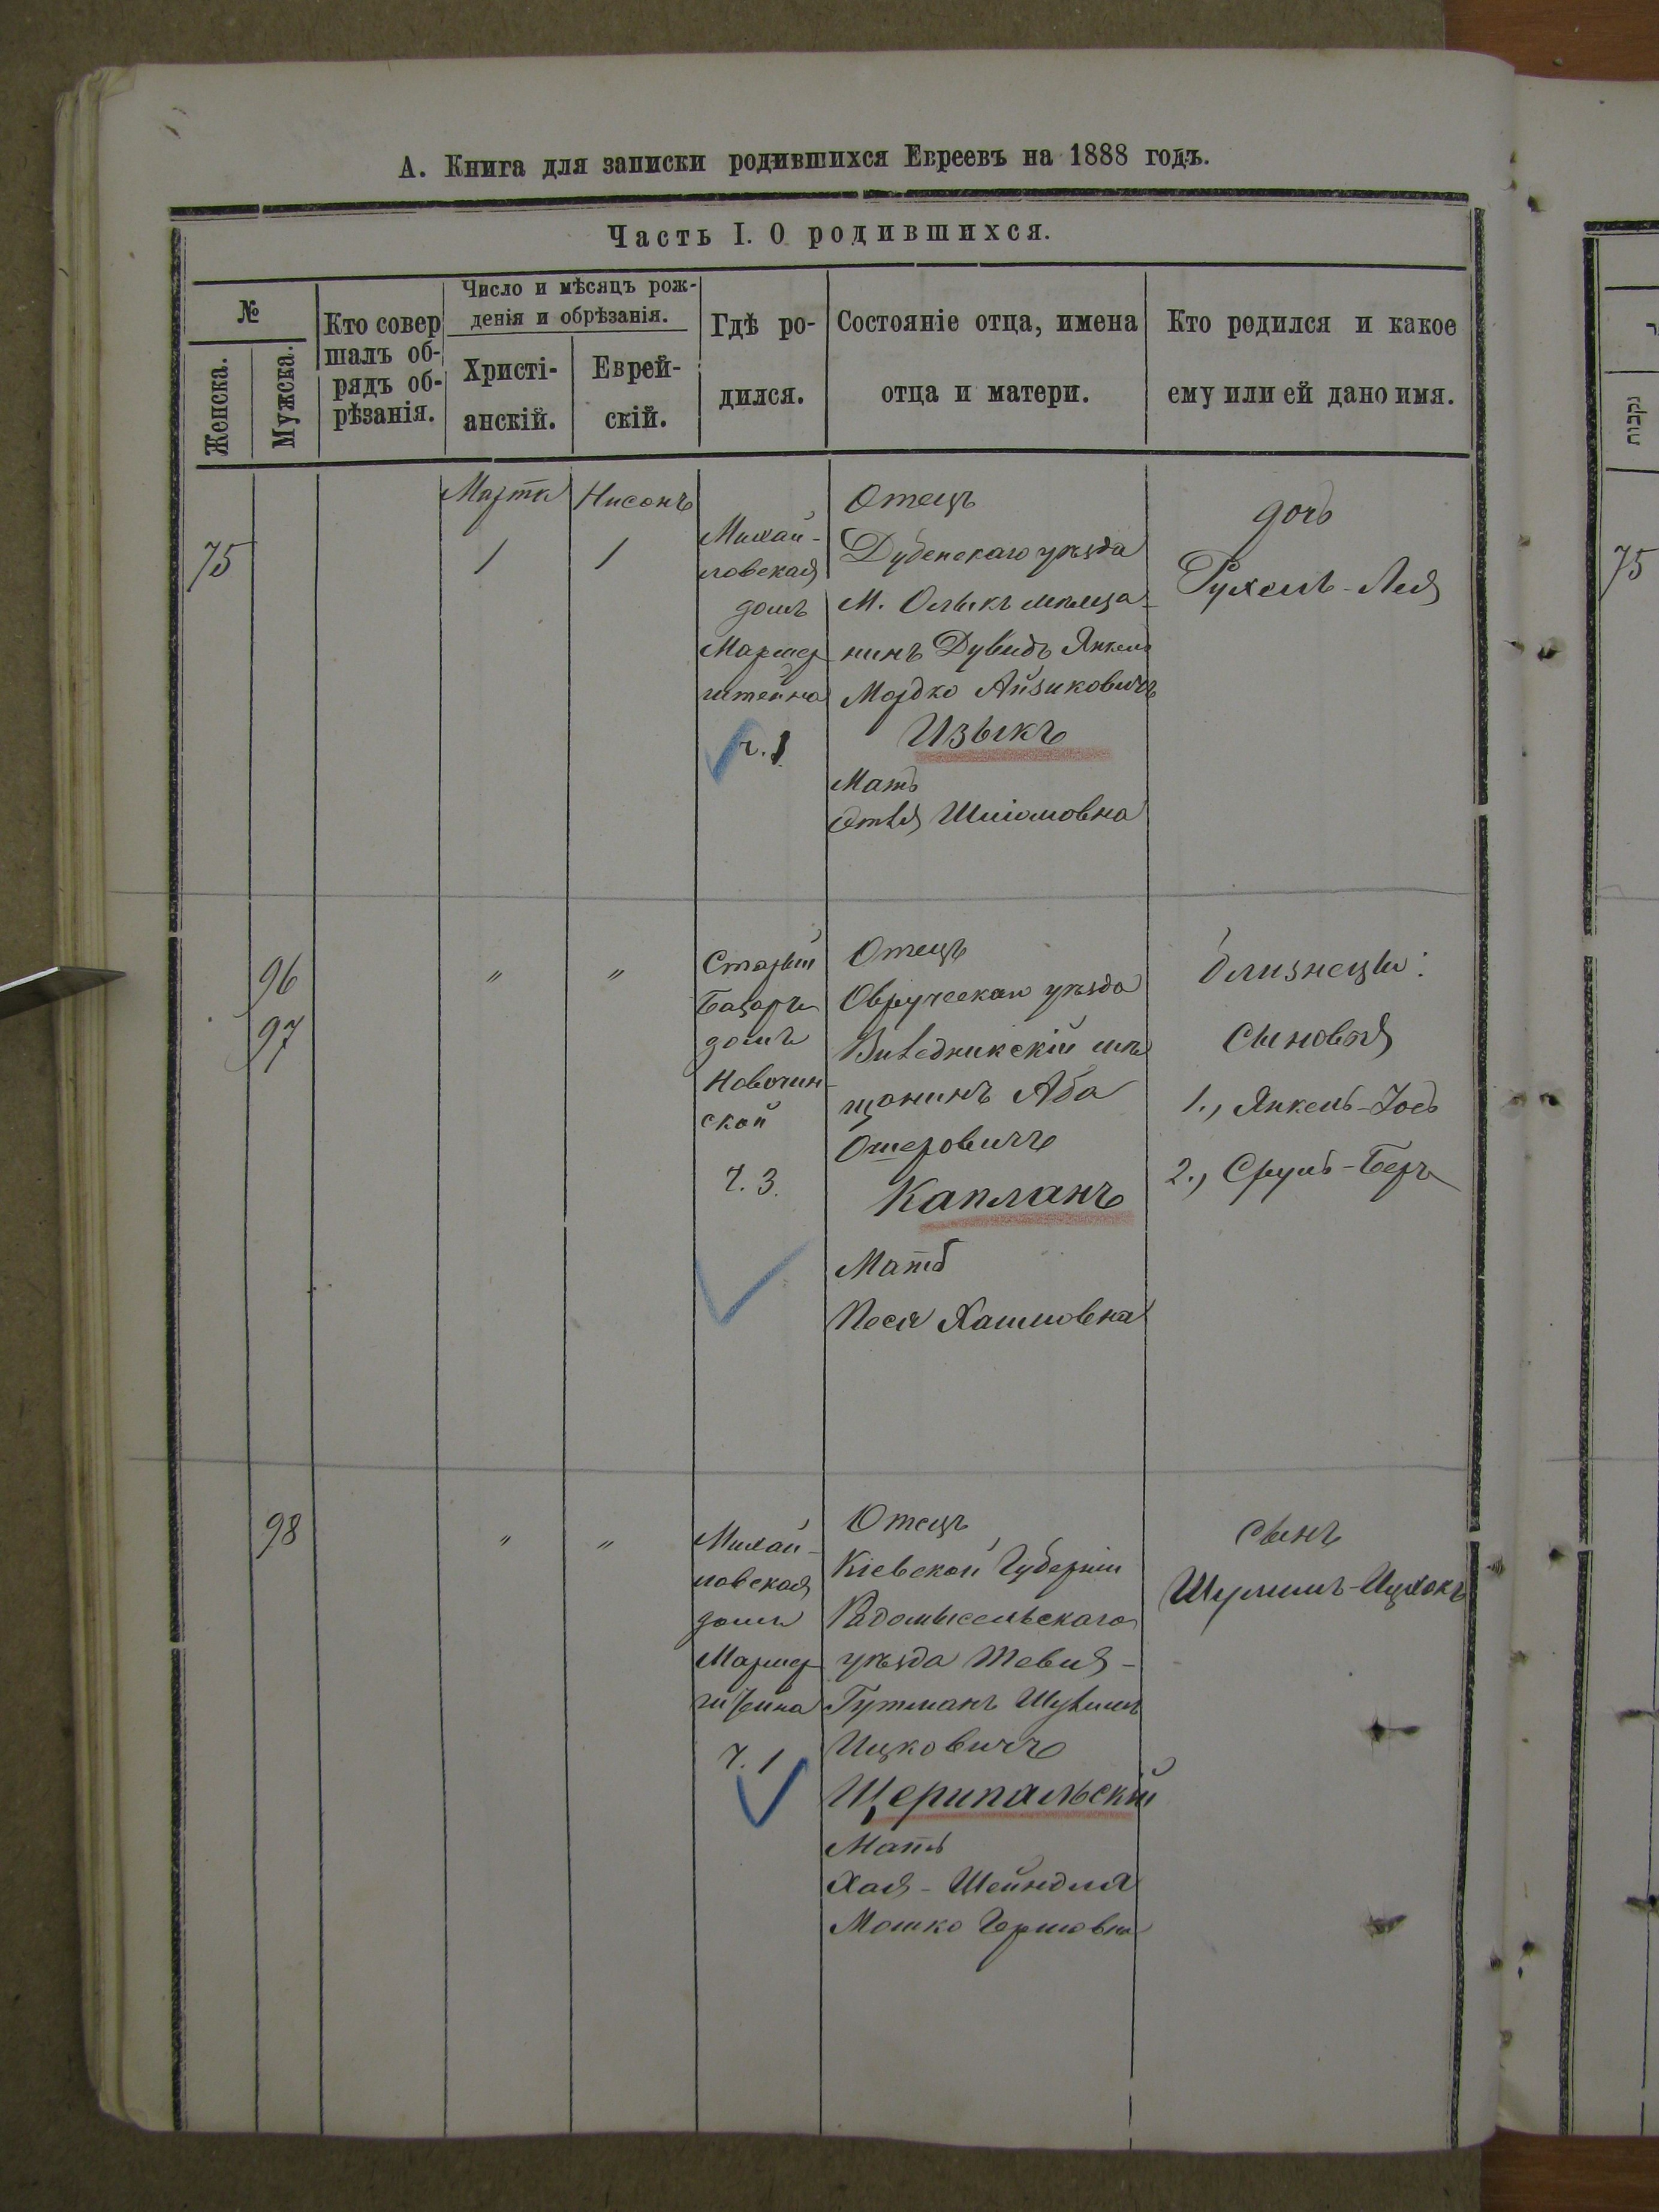 А. Книга для записки родившихся Евреевъ на 1888 годъ.
Часть I. О родившихся.
№
Женска.
Мужска.
Кто совер
шалъ об-
рядъ об-
рѣзанія.
Число и мѣсяцъ рож-
денія и обрѣзанія.
Христі-
анскій.
Еврей-
скій.
Гдѣ ро-
дился.
Состояніе отца, имена
отца и матери.
Кто родился и какое
ему или ей дано имя.
75
Марта
1
Нисонъ
1
Михай-
ловская
домъ
Маргер
штейна
ч. 1
Отецъ
Дубенскаго уѣзда
М. Олыкъ мѣща-
нинъ Дувидъ Янкель
Мордко Айзиковичъ
Изыкъ
Мать
Шліомовна
дочь
Рухель-Лея
96
97
"
"
Старый
Базаръ
домъ
ской
Ч. 3.
Отецъ
Овручскаго уѣзда
мѣ
щанинъ Аба
Ошеровичъ
Капланъ
Мать
Песя Хаимовна
близнецы:
сыновья
1., Янкель-Іось
2., Сруль-Беръ
98
"
"
Михай-
ловская
домъ
Маргер
штейна
Ч. 1
Отецъ
Кіевской Губерніи
Радомысельскаго
уѣзда Тевья-
Гутманъ
Ицковичъ
Щерипальскій
Мать
Хая-Шейндля
Мошко Гершовна
сынъ
Шулимъ-Ицхокъ
75
נקבות